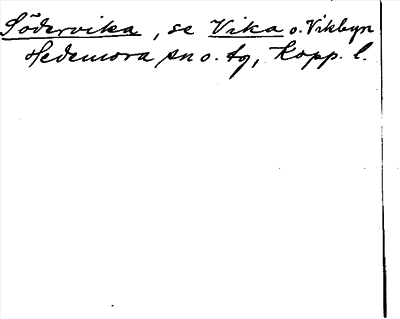 Södervika, se Vika o. Vikbyn
Hedemora sn o. tg, Kopp. l.